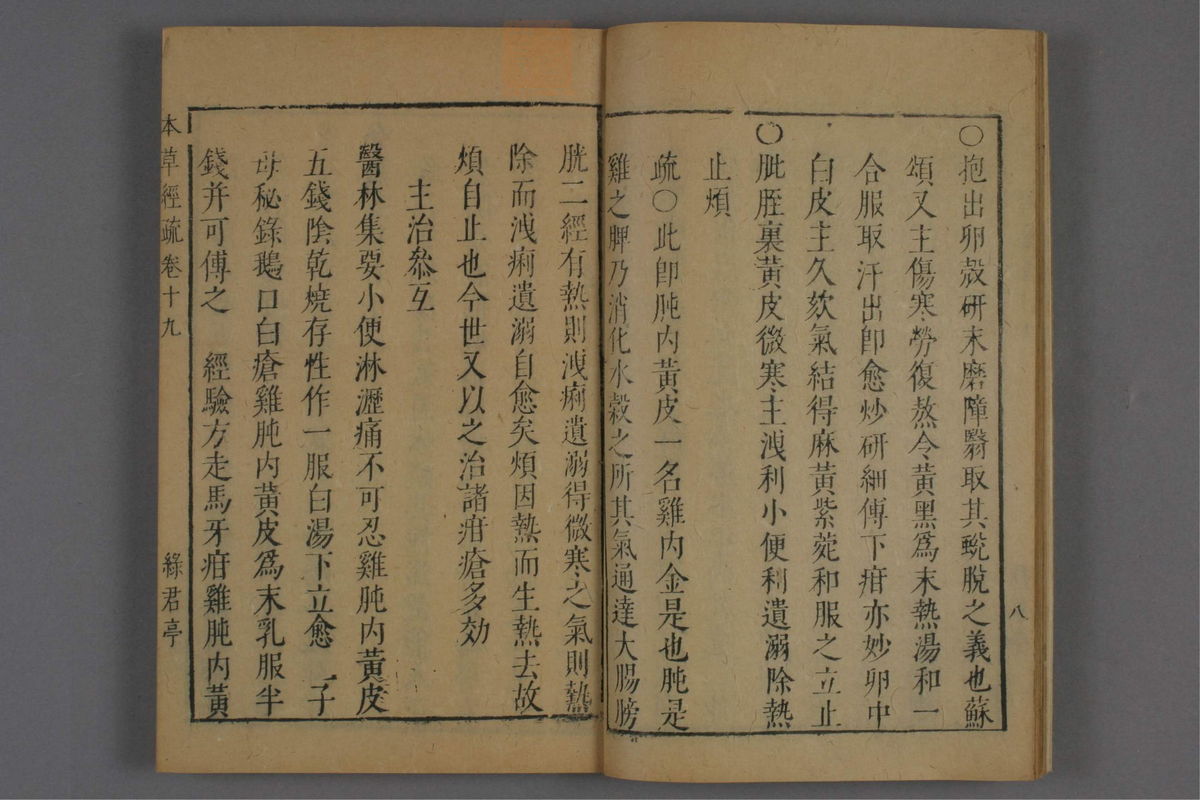 ○抱出卵殻研末磨障翳取其蛻脫之義也蘇
頌又主傷寒勞復熬令黃黑爲末熱湯和一
合服取汗出卽愈炒研細傅下疳亦妙卵中
白皮主久欬氣結得麻黃紫菀和服之立止
○肶胵裏黃皮微寒主洩利小便利遺溺除熱
止煩
疏○此卽肫内黃皮一名雞内金是也肫是
雞之脾乃消化水穀之所其氣通達大腸膀
八
胱二經有熱則洩痢遺溺得微寒之氣則熱
除而洩痢遺溺自愈矣煩因熱而生熱去故
煩自止也今世又以之治諸疳瘡多効
主治叅互
醫林集要小便淋瀝痛不可忍雞肫内黃皮
五錢陰乾燒存性作一服白湯下立愈 子
母秘錄鵝口白瘡雞肫内黃皮爲末乳服半
錢并可傅之 經驗方走馬牙疳雞肫内黃
本草經疏卷十九
綠君亭